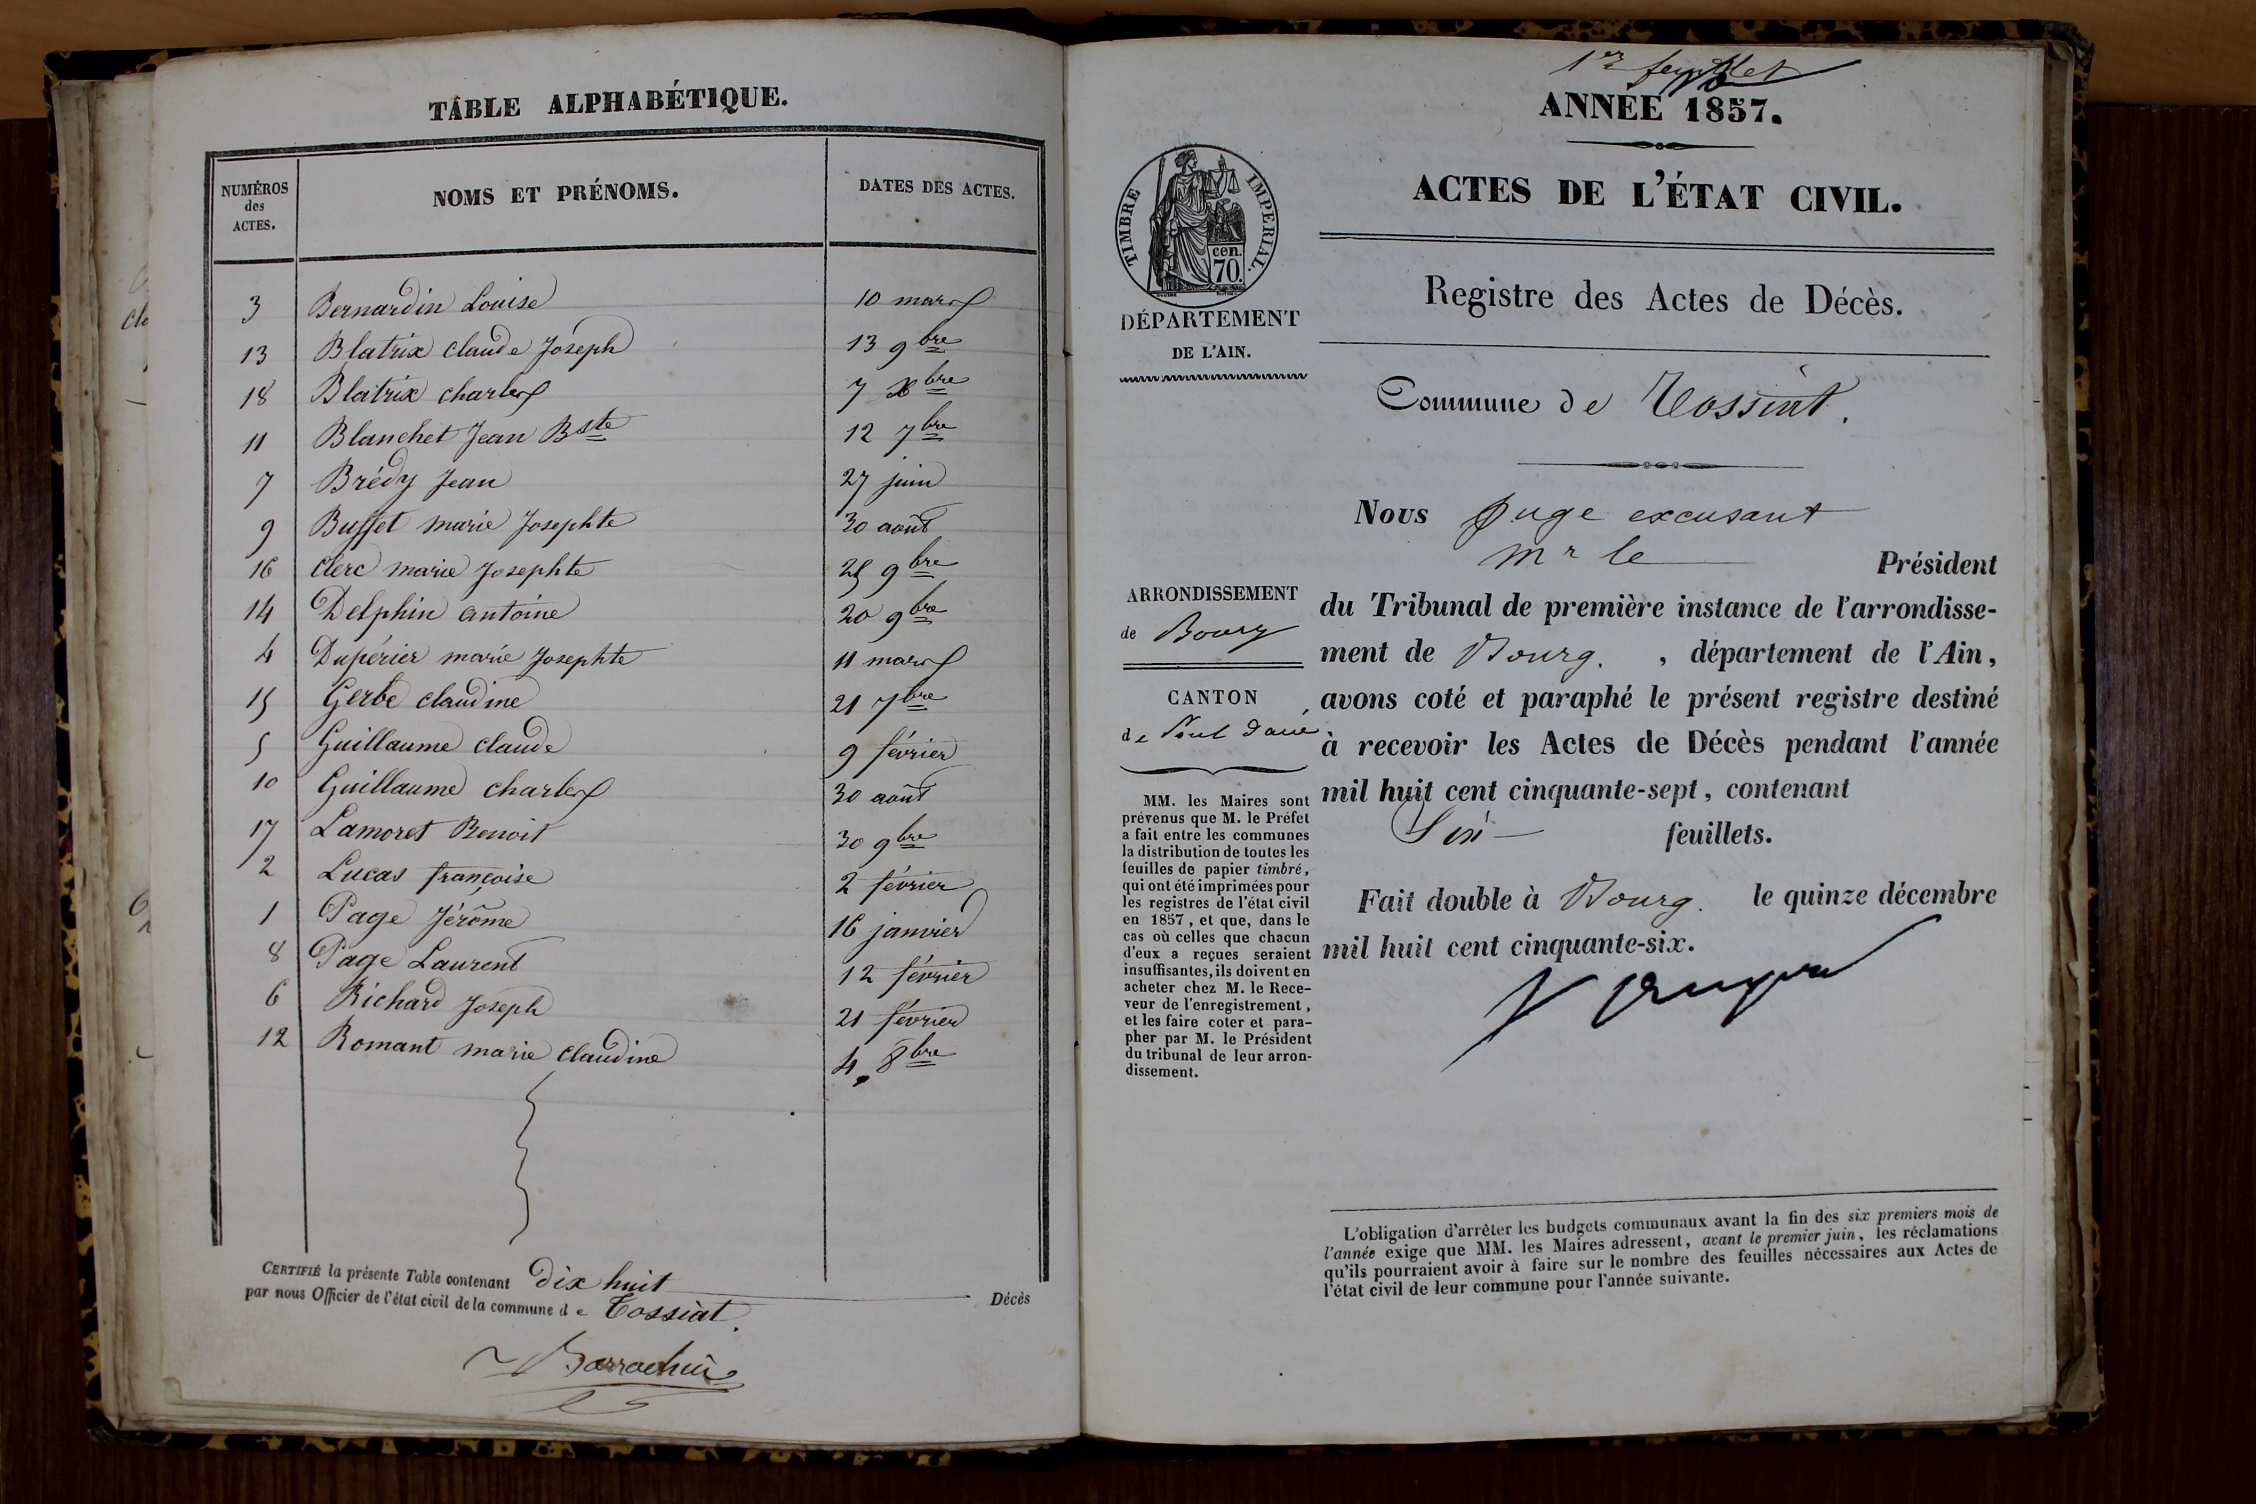 TABLE ALPHABÉTIQUE.
NUMÉROS des ACTES. NOMS ET PRÉNOMS. DATES DES ACTES.
3 Bernardin Louise 10 mars
13 Blatrix claude Joseph 13 9bre
18 Blatrix charles 7 xbre
11 Blanchet Jean Bste 12 7bre
7 Brédy Jean 27 juin
9 Buffet marie Josephte 30 août
16 Clerc marie Josephte 25 9bre
14 Delphin antoine 20 9bre
4 Dupérier marie Josephte 11 mars
15 Gerbe claudine 21 7bre
5 Guillaume claude 9 février
10 Guillaume charles 30 août
17 Lamoret Benoit 30 9bre
2 Lucas françoise 2 février
1 Page Jérôme 16 janvier
8 Page Laurent 12 février
6 Richard Joseph 21 février
12 Romant marie claudine 4 8bre
CERTIFIÉ la présente Table contenant dix huit Décès
par nous Officier de l'état civil de la commune de Tossiat.
Barrachin
1er feuillet
ANNÉE 1857.
TIMBRE IMPERIAL.
cen.
70.
ACTES DE L'ÉTAT CIVIL.
Registre des Actes de Décès.
DÉPARTEMENT
DE L'AIN.
Commune de Tossiat.
Nous Juge excusant
Mr le Président
du Tribunal de première instance de l'arrondisse-
ment de Bourg. , département de l'Ain,
avons coté et paraphé le présent registre destiné
à recevoir les Actes de Décès pendant l'année
mil huit cent cinquante-sept, contenant
Six feuillets.
Fait double à Bourg. le quinze décembre
mil huit cent cinquante-six.
ARRONDISSEMENT
de Bourg
CANTON
de Pont d'ain
MM. les Maires sont
prévenus que M. le Préfet
a fait entre les communes
la distribution de toutes les
feuilles de papier timbré,
qui ont été imprimées pour
les registres de l'état civil
en 1857, et que, dans le
cas où celles que chacun
d'eux a reçues seraient
insuffisantes, ils doivent en
acheter chez M. le Rece-
veur de l'enregistrement,
et les faire coter et para-
pher par M. le Président
du tribunal de leur arron-
dissement.
L'obligation d'arrêter les budgets communaux avant la fin des six premiers mois de
l'année exige que MM. les Maires adressent, avant le premier juin, les réclamations
qu'ils pourraient avoir à faire sur le nombre des feuilles nécessaires aux Actes de
l'état civil de leur commune pour l'année suivante.